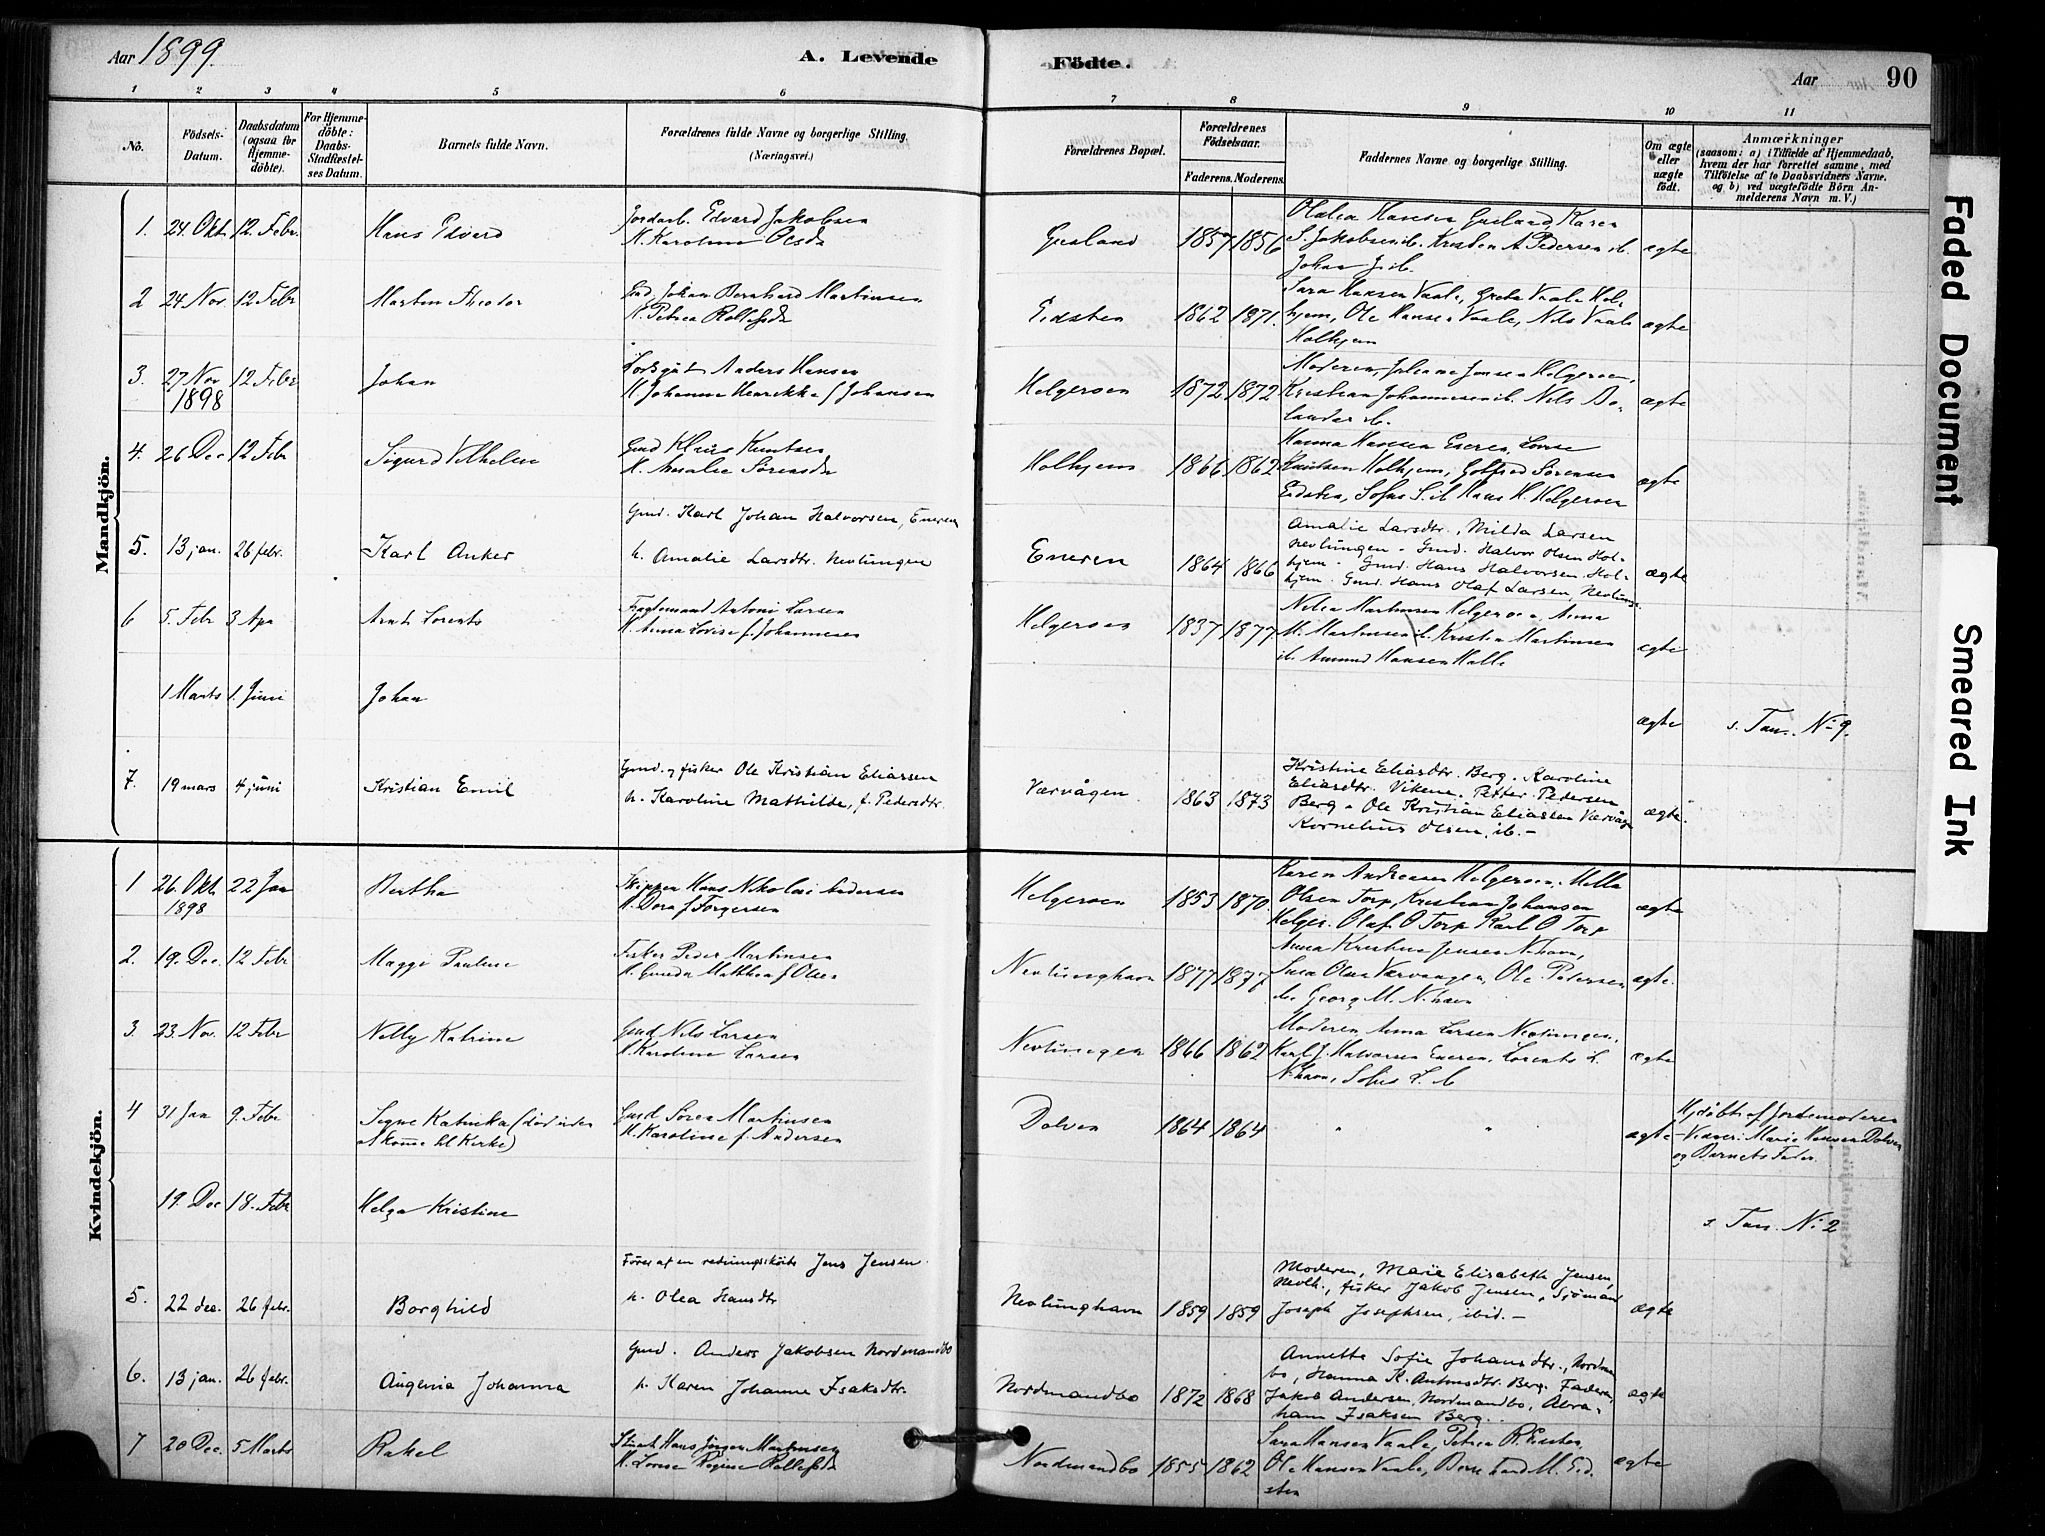 Aar 1899.
A. Levende Födte.
Aar
90
1 2 3 4 5 6 7 8 9 10 11
No.
Födsels-Datum.
Daabsdatum (ogsaa for Hjemmedöbte).
For Hjemmedöbte: Daabs-Stadfæstelses Datum.
Barnets fulde Navn.
Forældrenes fulde Navne og borgerlige Stilling. (Næringsvei.)
Forældrenes Bopæl.
Forældrenes Födselsaar.
Faderens. Moderens.
Faddernes Navne og borgerlige Stilling.
Om ægte eller uægte födt.
Anmærkninger
(saasom: a) i Tilfælde af Hjemmedaab, hvem der har forrettet samme, med Tilföielse af to Daabsvidners Navne, og b) ved uægtefödte Börn Anmelderens Navn m. V.)
Mandkjön.
1. 24. Okt 12. Febr. Hans Edvard
Jordarb. Edvard Jakobsen
H. Karoline Olsdr
Gusland 1857 1856
Olalea Hansen Gusland, Karen
S. Jakobsen ib. Kristen A Pedersen ib.
Johan J. ib.
ægte
2 24 Nov 12 Febr Martin Theodor
Gmd. Johan Bernhard Martinsen
H. Petrea Rollefsdr
Eidsten 1862 1871.
Sara Hansen Vaale, Greta Vaale Hol-
hjem, Ole Hansen Vaale, Nils Vaale
Holhjem
ægte
3. 27 Nov 1898 12 Febr Johan
Lodsgut Anders Hansen
H. Johanne Henrikke f Johansen
Helgeroen 1872 1872
Moderen, Johanne Jensen Helgeroen,
Kristian Johannesen ib. Nils Bo-
lander ib.
ægte
4. 26 Dec 12 Febr Sigurd Vilhelm
Gmd Klaus Knutsen
H. Amalie Sörensdr
Holhjem 1866 1862
Hanna Hansen Eneren, Lovise
Knutsen Holhjem, Gotfred Sörensen
Eidsten, Sofus S. ib Hans H. Helgeroen
ægte
5. 13 jan. 26 febr. Karl Anker
Gmd. Karl Johan Halvorsen, Eneren
h. Amalie Larsdtr. Nevlungen
Eneren 1864 1866
Amalie Larsdtr., Milda Larsen
Nevlungen - Gmd. Halvor Olsen Hol-
hjem - Gmd. Hans Halvorsen Hol-
hjem. Gmd. Hans Olaf Larsen, Nevlunge
ægte
6 5. Febr 3 Apr Arnt Lorents
Fragtemand Antoni Larsen
H. Anna Lovise f. Johannesen
Helgeroen 1837 1877
Nilea Martinsen Helgeroen Anna
M. Martinsen ib. Kristen Martinsen
ib. Amund Hansen Halle
ægte
1 Marts 1. Juni Johan
ægte s. Tan. No 9.
7. 19 mars 4 juni Kristian Emil
Gmd. og fisker Ole Kristian Eliassen
h. Karoline Mathilde, f. Pedersdtr.
Værvågen 1863 1873
Kristine Eliasdtr. Berg. Karoline
Eliasdtr. Vikene. Petter Pedersen
Berg - Ole Kristian Eliassen Værvåge
Kornelius Olsen, ib. -
ægte.
Kvindekjön.
1 26. Okt 1898 22 Jan Bertha
Skipper Hans Nikolai Andersen
H. Dora f Torgersen
Helgeroen 1853 1870
Karen Andreasen Helgeroen, Milla
Olsen Torp, Kristian Johansen
Helger. Olaf O Torp Karl O Torp
ægte
2. 19. Dec. 12 Febr Maggi Pauline
Fisker Peder Martinsen
H. Gunda Mathea f Olsen
Nevlunghavn 1877 1877
Anna Kristine Jensen N.havn,
Olsen Værvaagen, Ole Petersen
ib. Georg M. N.havn
ægte.
3. 23. Nov. 12 Febr Nelly Katrine
Gmd Nils Larsen
H. Karoline Larsen
Nevlungen 1866 1862
Moderen Anna Larsen Nevlungen,
Karl J. Halvorsen Eneren, Lorents L.
N.havn, Sofus L. ib
ægte
4 31 Jan 9. Febr Signe Katinka (död uden
at komme til Kirke)
Gmd Sören Martinsen
H. Karoline f. Andersen
Dolven 1864 1864
" "
ægte
Hjdöbt af Jordemoderen
- Vidner: Marie Hansen Dolven
og Barnets Fader.
19. Dec 18. Febr Helga Kristine
s. Tan. No 2
5. 22 dec. 26 febr. Borghild
Förer af en redningsköite Jens Jensen.
h. Olea Hansdtr
Nevlunghavn 1859 1859
Moderen, Marie Elisabeth Jensen,
Nevlh., fisker Jakob Jensen, Sjömand
Joseph Josephsen, ibid. -
ægte
6. 13 jan. 26 febr. Augenia Johanna
Gmd. Anders Jakobsen Nordmandbo
h. Karen Johanne Isaksdtr.
Nordmandbo 1872 1868
Annette Sofie Johansdtr., Nordm
bo, Hanna K. Antonsdtr. Berg. Faderen,
Jakob Andersen, Nordmandbo, Abra-
ham Isaksen Berg..
ægte
7 20 Dec. 5 Marts Rakel
Hans Jörgen Martinsen
H. Lovise Regine Rollefsdr
Nordmandbo 1855 1862
Sara Hansen Vaale, Petrea R. Eidsten,
Ole Hansen Vaale, Bernhard M. Eid-
sten
ægte
Faded Document
Smeared Ink